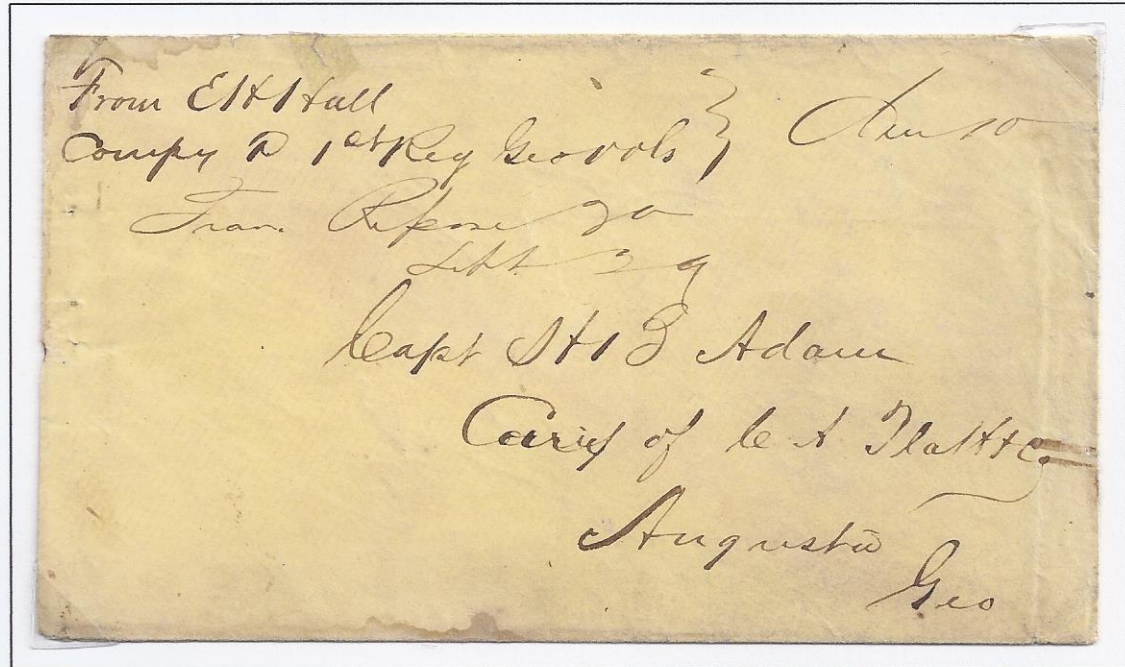 From E H Hall
Compy D 1st Reg Geo vols } Due 10
Trav. Repose Va
Sept 29
Capt H J Adam
Care of C A Platt & Co.
Augusta
Geo